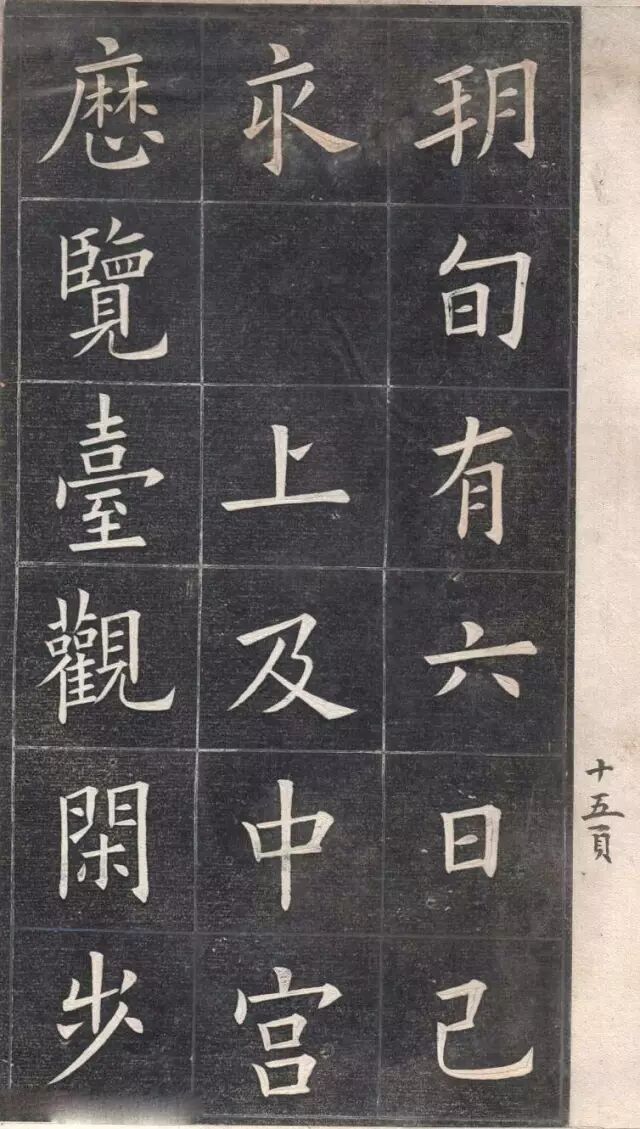 十五頁
朔旬有六日己
亥 上及中宫
歷覽臺觀閑步